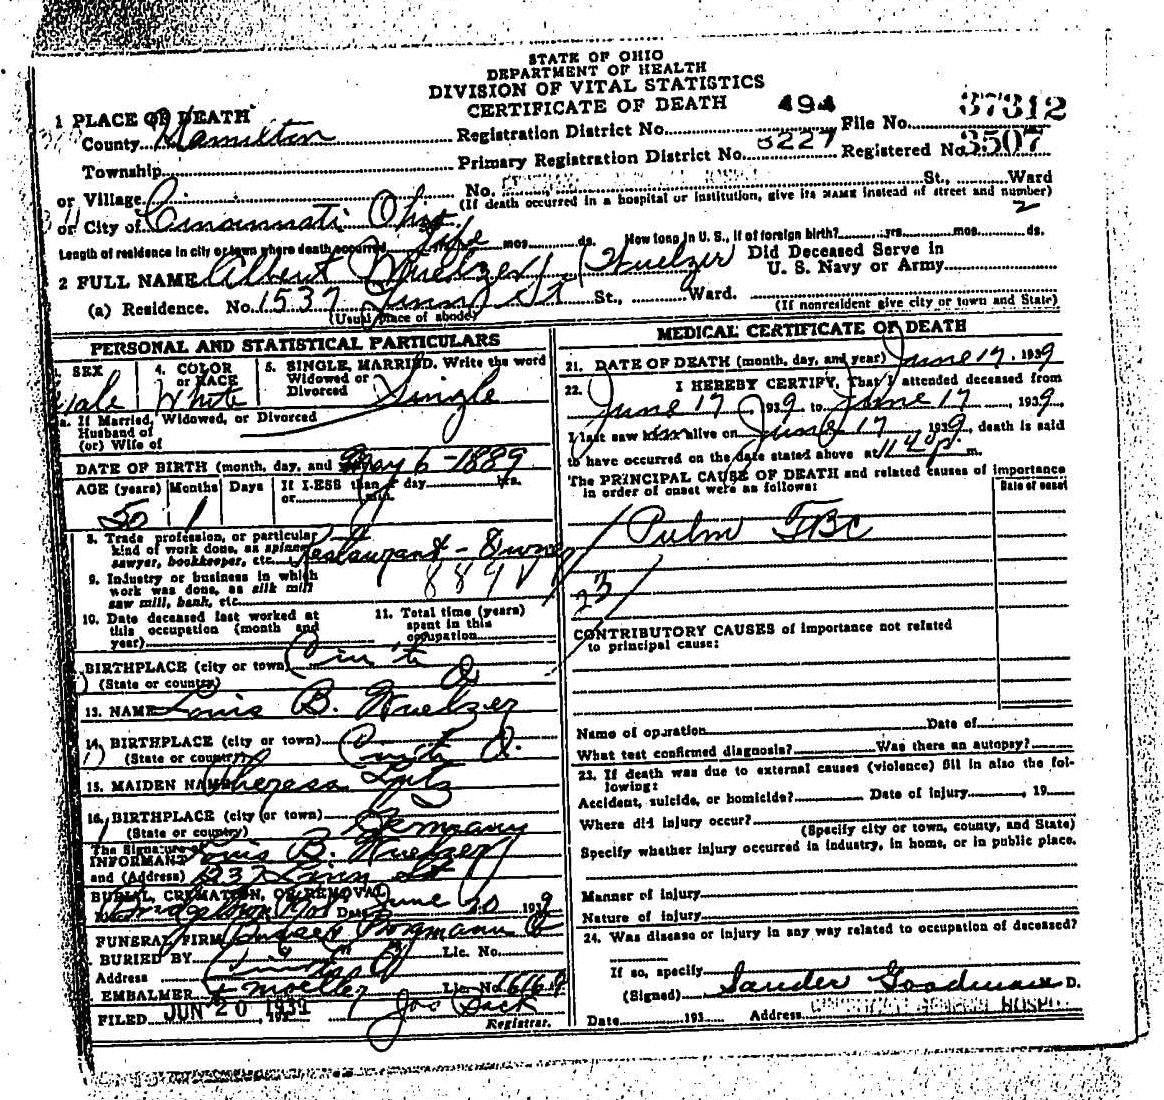 STATE OF OHIO
DEPARTMENT OF HEALTH
DIVISION OF VITAL STATISTICS
CERTIFICATE OF DEATH
1 PLACE OF DEATH
County Hamilton Registration District No. 494 File No. 37312
Township Primary Registration District No. 8227 Registered No. 3507
or Village No. St., Ward
(If death occurred in a hospital or institution, give its NAME instead of street and number)
or City of Cincinnati Ohio 2
Length of residence in city or town where death occurred Life mos. ds. How long in U. S., if of foreign birth? yrs. mos. ds.
2 FULL NAME Albert Muelzer (Wuelzer) Did Deceased Serve in
U. S. Navy or Army
(a) Residence. No. 1537 St St., Ward.
(Usual place of abode) (If nonresident give city or town and State)
PERSONAL AND STATISTICAL PARTICULARS
3. SEX 4. COLOR or RACE 5. SINGLE, MARRIED, Write the word
Widowed or
Divorced
Male White Single
5a. If Married, Widowed, or Divorced
Husband of
(or) Wife of
DATE OF BIRTH (month, day, and May 6-1889
AGE (years) Months Days If LESS than day hrs.
or min.
50 1
8. Trade, profession, or particular
kind of work done, as spinner,
sawyer, bookkeeper, etc. Restaurant-Owner
9. Industry or business in which
work was done, as silk mill
saw mill, bank, etc.
10. Date deceased last worked at
this occupation (month and
year)
11. Total time (years)
spent in this
occupation
BIRTHPLACE (city or town) Cin'ti
(State or country) O
13. NAME Louis B. Wuelzer
14. BIRTHPLACE (city or town) Cinti O.
(State or country)
15. MAIDEN NAME Theresa Lutz
16. BIRTHPLACE (city or town) Germany
(State or country)
The Signature of
INFORMANT Louis B. Wuelzer
and (Address) St
BURIAL, CREMATION, OR REMOVAL
Date June 20 1939
FUNERAL FIRM Borgmann Co
BURIED BY Lic. No.
Address
EMBALMER F Moeller Lic. No.
FILED JUN 20 1939 , 193 Jos
Registrar.
MEDICAL CERTIFICATE OF DEATH
21. DATE OF DEATH (month, day, and year) June 17, 1939
22. I HEREBY CERTIFY, That I attended deceased from
June 17 1939 to June 17, 1939.
I last saw him alive on June 17 1939, death is said
to have occurred on the date stated above at m.
The PRINCIPAL CAUSE OF DEATH and related causes of importance
in order of onset were as follows:
Date of onset
Pulm TBC
23
CONTRIBUTORY CAUSES of importance not related
to principal cause:
Name of operation Date of
What test confirmed diagnosis? Was there an autopsy?
23. If death was due to external causes (violence) fill in also the fol-
lowing:
Accident, suicide, or homicide? Date of injury , 19
Where did injury occur?
(Specify city or town, county, and State)
Specify whether injury occurred in industry, in home, or in public place.
Manner of injury
Nature of injury
24. Was disease or injury in any way related to occupation of deceased?
If so, specify
(Signed) Sander Goodman M. D.
Date 193 Address GENERAL HOSPITAL